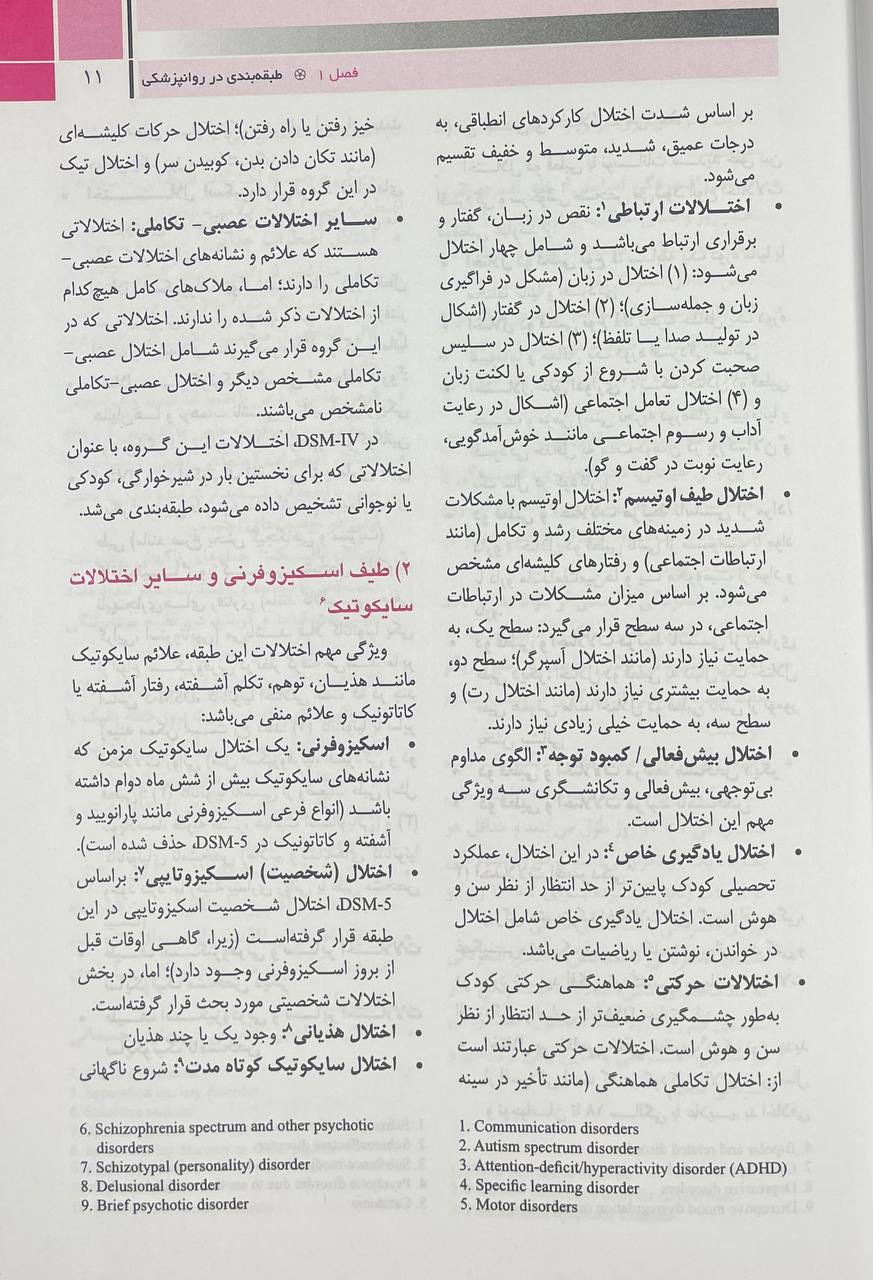 ۱۱
فصل ۱ ֍ طبقه‌بندی در روانپزشکی
بر اساس شدت اختلال کارکردهای انطباقی، به
درجات عمیق، شدید، متوسط و خفیف تقسیم
می‌شود.
• اختلالات ارتباطی۱: نقص در زبان، گفتار و
برقراری ارتباط می‌باشد و شامل چهار اختلال
می‌شود: (۱) اختلال در زبان (مشکل در فراگیری
زبان و جمله‌سازی)؛ (۲) اختلال در گفتار (اشکال
در تولید صدا یا تلفظ)؛ (۳) اختلال در سلیس
صحبت کردن با شروع از کودکی یا لکنت زبان
و (۴) اختلال تعامل اجتماعی (اشکال در رعایت
آداب و رسوم اجتماعی مانند خوش‌آمدگویی،
رعایت نوبت در گفت و گو).
• اختلال طیف اوتیسم۲: اختلال اوتیسم با مشکلات
شدید در زمینه‌های مختلف رشد و تکامل (مانند
ارتباطات اجتماعی) و رفتارهای کلیشه‌ای مشخص
می‌شود. بر اساس میزان مشکلات در ارتباطات
اجتماعی، در سه سطح قرار می‌گیرد: سطح یک، به
حمایت نیاز دارند (مانند اختلال آسپرگر)؛ سطح دو،
به حمایت بیشتری نیاز دارند (مانند اختلال رت) و
سطح سه، به حمایت خیلی زیادی نیاز دارند.
• اختلال بیش‌فعالی/ کمبود توجه۳: الگوی مداوم
بی‌توجهی، بیش‌فعالی و تکانشگری سه ویژگی
مهم این اختلال است.
• اختلال یادگیری خاص۴: در این اختلال، عملکرد
تحصیلی کودک پایین‌تر از حد انتظار از نظر سن و
هوش است. اختلال یادگیری خاص شامل اختلال
در خواندن، نوشتن یا ریاضیات می‌باشد.
• اختلالات حرکتی۵: هماهنگی حرکتی کودک
به‌طور چشمگیری ضعیف‌تر از حد انتظار از نظر
سن و هوش است. اختلالات حرکتی عبارتند است
از: اختلال تکاملی هماهنگی (مانند تأخیر در سینه
1. Communication disorders
2. Autism spectrum disorder
3. Attention-deficit/hyperactivity disorder (ADHD)
4. Specific learning disorder
5. Motor disorders
خیز رفتن یا راه رفتن)؛ اختلال حرکات کلیشه‌ای
(مانند تکان دادن بدن، کوبیدن سر) و اختلال تیک
در این گروه قرار دارد.
• سایر اختلالات عصبی- تکاملی: اختلالاتی
هستند که علائم و نشانه‌های اختلالات عصبی-
تکاملی را دارند؛ اما، ملاک‌های کامل هیچ‌کدام
از اختلالات ذکر شده را ندارند. اختلالاتی که در
این گروه قرار می‌گیرند شامل اختلال عصبی-
تکاملی مشخص دیگر و اختلال عصبی-تکاملی
نامشخص می‌باشند.
در DSM-IV، اختلالات این گروه، با عنوان
اختلالاتی که برای نخستین بار در شیرخوارگی، کودکی
یا نوجوانی تشخیص داده می‌شود، طبقه‌بندی می‌شد.
۲) طیف اسکیزوفرنی و سایر اختلالات
سایکوتیک۶
ویژگی مهم اختلالات این طبقه، علائم سایکوتیک
مانند هذیان، توهم، تکلم آشفته، رفتار آشفته یا
کاتاتونیک و علائم منفی می‌باشد:
• اسکیزوفرنی: یک اختلال سایکوتیک مزمن که
نشانه‌های سایکوتیک بیش از شش ماه دوام داشته
باشد (انواع فرعی اسکیزوفرنی مانند پارانویید و
آشفته و کاتاتونیک در DSM-5، حذف شده است).
• اختلال (شخصیت) اسکیزوتایپی۷: براساس
DSM-5، اختلال شخصیت اسکیزوتایپی در این
طبقه قرار گرفته‌است (زیرا، گاهی اوقات قبل
از بروز اسکیزوفرنی وجود دارد)؛ اما، در بخش
اختلالات شخصیتی مورد بحث قرار گرفته‌است.
• اختلال هذیانی۸: وجود یک یا چند هذیان
• اختلال سایکوتیک کوتاه مدت۹: شروع ناگهانی
6. Schizophrenia spectrum and other psychotic
disorders
7. Schizotypal (personality) disorder
8. Delusional disorder
9. Brief psychotic disorder